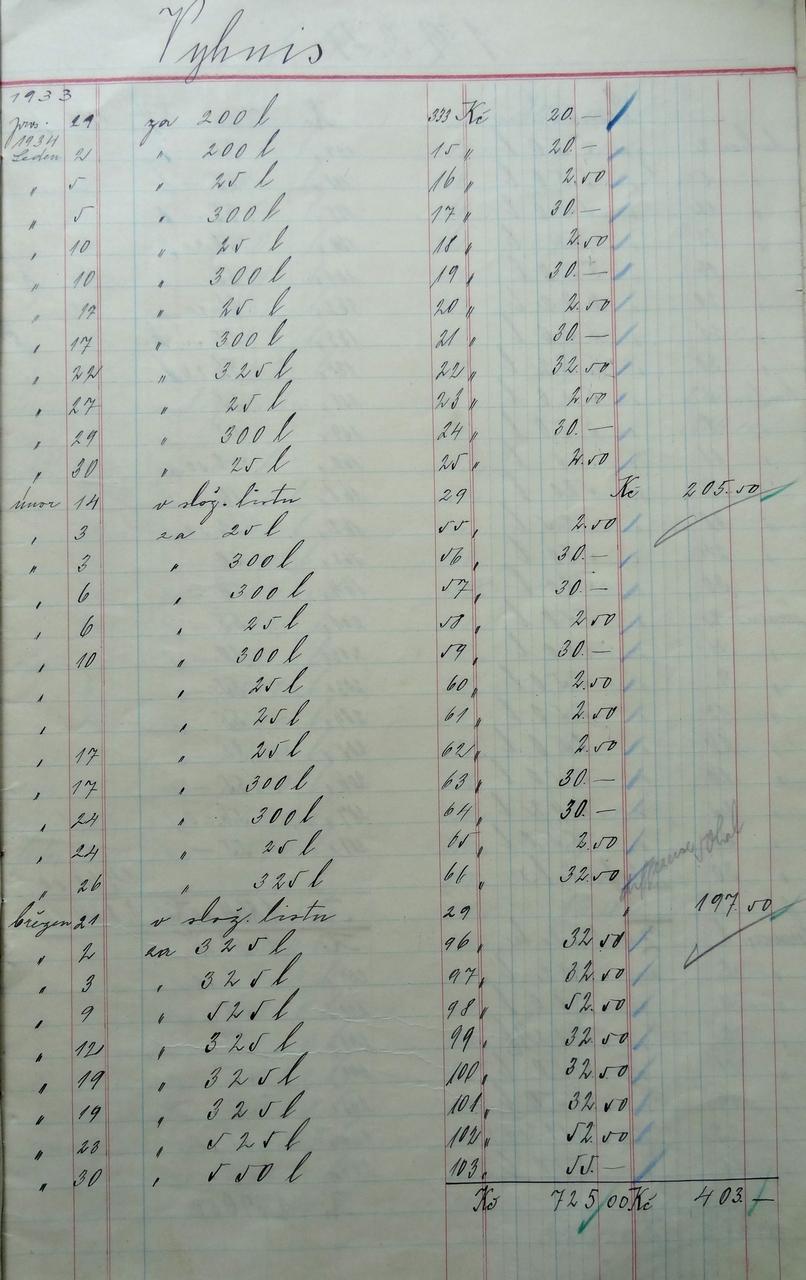 Vyhnis
1933
pros. 29 za 200 l 333 Kč 20.—
1934
Leden 2 " 200 l 15 " 20.—
" 5 " 25 l 16 " 2.50
" 5 " 300 l 17 " 30.—
" 10 " 25 l 18 " 2.50
" 10 " 300 l 19 " 30.—
" 17 " 25 l 20 " 2.50
" 17 " 300 l 21 " 30.—
" 22 " 325 l 22 " 32.50
" 27 " 25 l 23 " 2.50
" 29 " 300 l 24 " 30.—
" 30 " 25 l 25 " 2.50
únor 14 v slož. listu 29 Kč 205.50
" 3 za 25 l 55 " 2.50
" 3 " 300 l 56 " 30.—
" 6 " 300 l 57 " 30.—
" 6 " 25 l 58 " 2.50
" 10 " 300 l 59 " 30.—
" " 25 l 60 " 2.50
" " 25 l 61 " 2.50
" 17 " 25 l 62 " 2.50
" 17 " 300 l 63 " 30.—
" 24 " 300 l 64 " 30.—
" 24 " 25 l 65 " 2.50
" 26 " 325 l 66 " 32.50
březen 21 v slož. listu 29 " 197.50
" 2 za 325 l 96 " 32.50
" 3 " 325 l 97 " 32.50
" 9 " 525 l 98 " 52.50
" 12 " 325 l 99 " 32.50
" 19 " 325 l 100 " 32.50
" 19 " 325 l 101 " 32.50
" 23 " 525 l 102 " 52.50
" 30 " 550 l 103 " 55.—
Kč 725,00 Kč 403.—